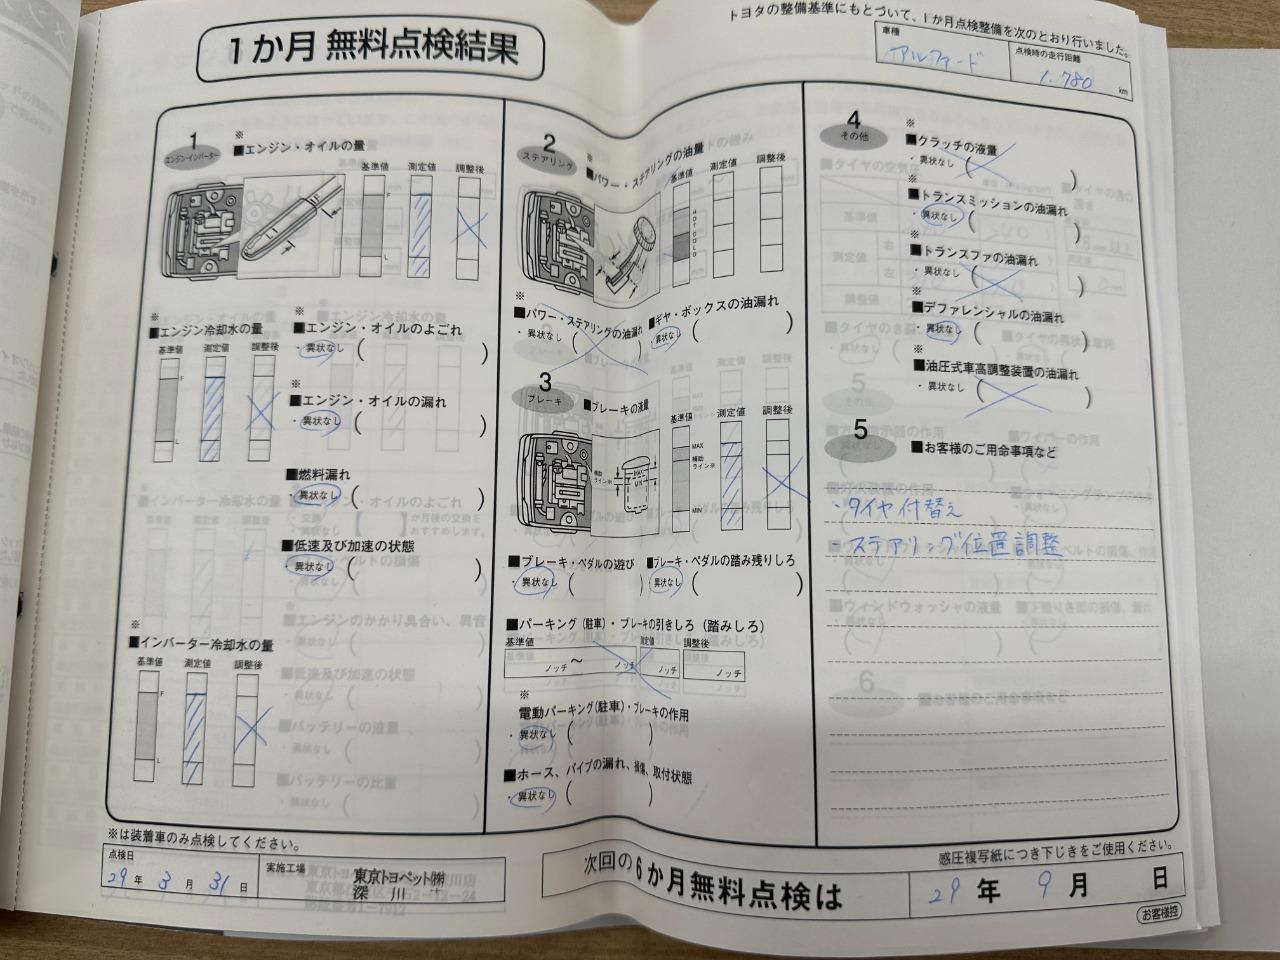 トヨタの整備基準にもとづいて、1か月点検整備を次のとおり行いました。
1か月 無料点検結果
車種
アルファード
点検時の走行距離
1,780 km
1
エンジン・インバーター
※
■エンジン・オイルの量
基準値 測定値 調整後
F
L
※
■エンジン冷却水の量
基準値 測定値 調整後
F
L
※
■エンジン・オイルのよごれ
・異状なし ( )
※
■エンジン・オイルの漏れ
・異状なし ( )
■燃料漏れ
・異状なし ( )
■低速及び加速の状態
・異状なし ( )
※
■インバーター冷却水の量
基準値 測定値 調整後
F
L
2
ステアリング
※
■パワー・ステアリングの油量
基準値 測定値 調整後
HOT
COLD
※
■パワー・ステアリングの油漏れ
・異状なし ( )
■ギヤ・ボックスの油漏れ
異状なし ( )
3
ブレーキ
■ブレーキの液量
基準値 測定値 調整後
補助ライン※
MAX
MIN
MAX
補助ライン※
MIN
■ブレーキ・ペダルの遊び
・異状なし ( )
■ブレーキ・ペダルの踏み残りしろ
異状なし ( )
■パーキング(駐車)・ブレーキの引きしろ(踏みしろ)
基準値 測定値 調整後
ノッチ〜 ノッチ ノッチ ノッチ
※
電動パーキング(駐車)・ブレーキの作用
・異状なし ( )
■ホース、パイプの漏れ、損傷、取付状態
・異状なし ( )
4
その他
※
■クラッチの液量
・異状なし ( )
※
■トランスミッションの油漏れ
・異状なし ( )
※
■トランスファの油漏れ
・異状なし ( )
※
■デファレンシャルの油漏れ
・異状なし ( )
※
■油圧式車高調整装置の油漏れ
・異状なし ( )
5
■お客様のご用命事項など
・タイヤ付替え
・ステアリング位置調整
※は装着車のみ点検してください。
感圧複写紙につき下じきをご使用ください。
点検日
29年 3月 31日
実施工場
東京トヨペット㈱
深川
次回の6か月無料点検は
29年 9月 日
お客様控